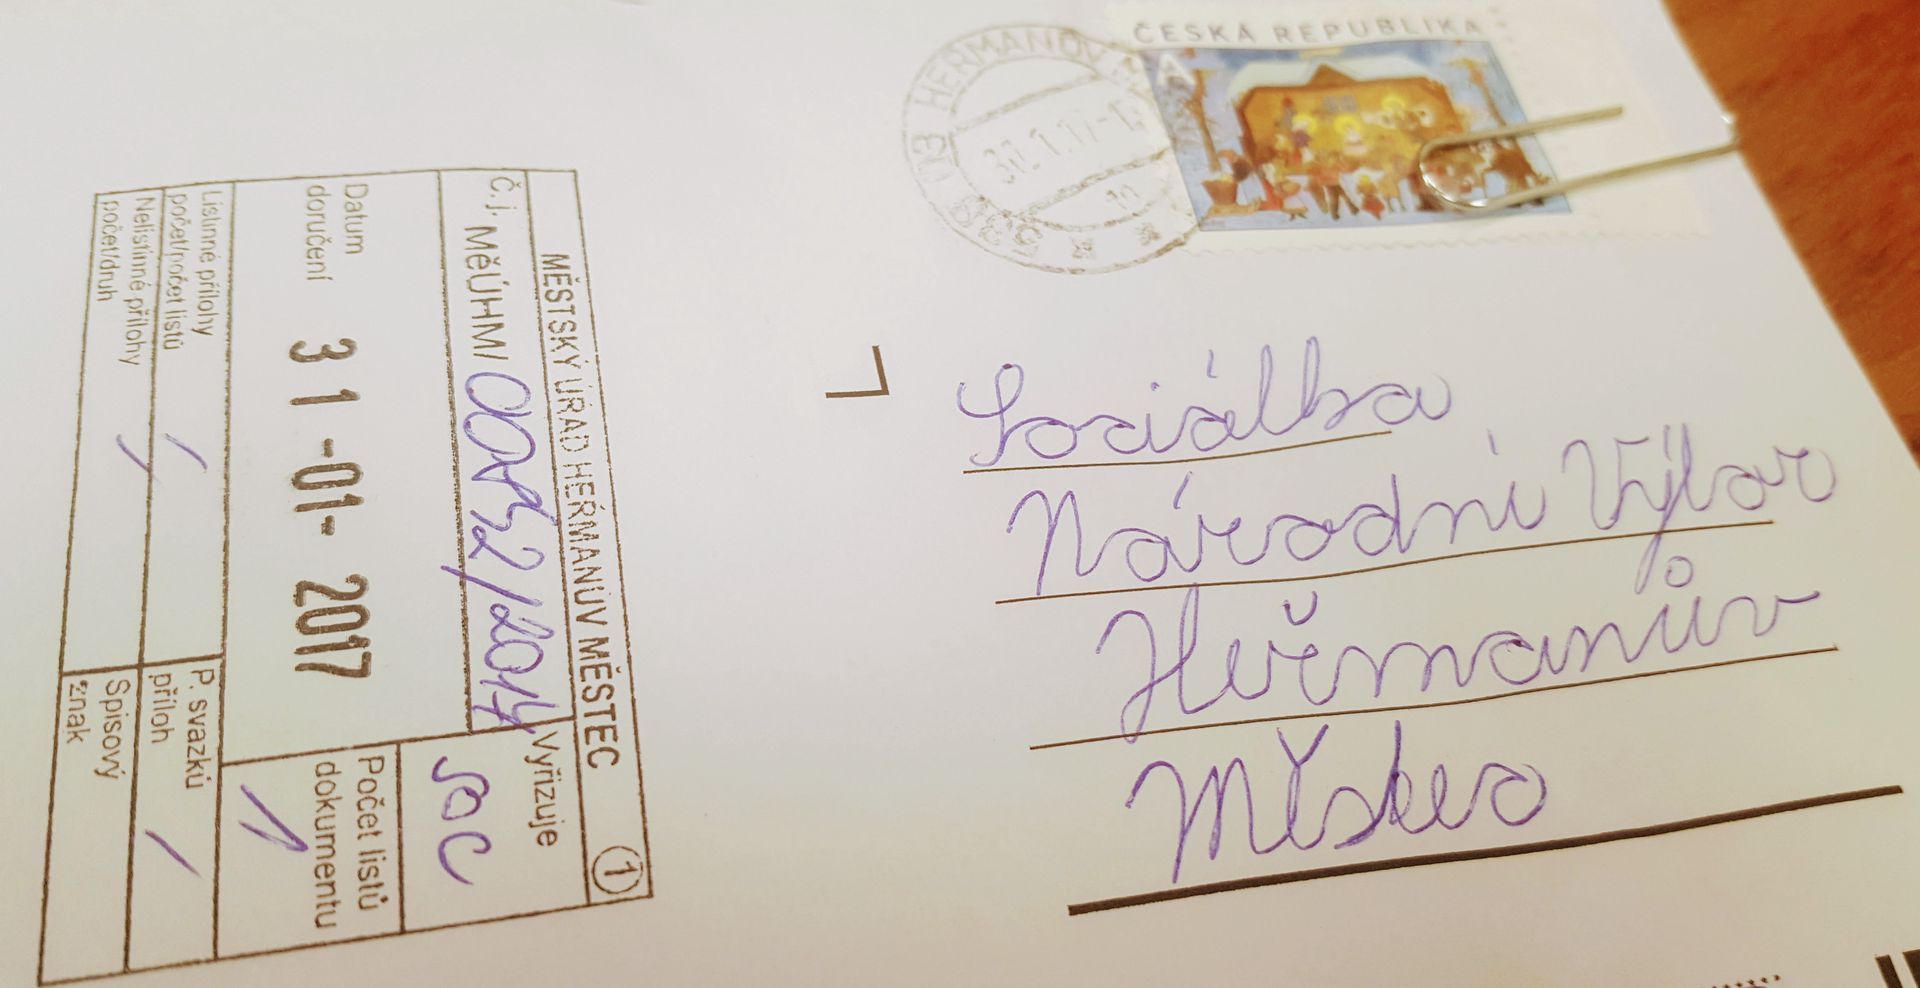 ČESKÁ REPUBLIKA
A
HEŘMANŮV M
30.1.17-1
Sociálka
Národní Výbor
Heřmanův
Městec
MĚSTSKÝ ÚŘAD HEŘMANŮV MĚSTEC 1
Č.j. MěÚHM/
Vyřizuje
soc
Datum
doručení 31 -01- 2017
Počet listů
dokumentu
1
Listinné přílohy
počet/počet listů /
P. svazků
příloh /
Nelistinné přílohy
počet/druh /
Spisový
znak